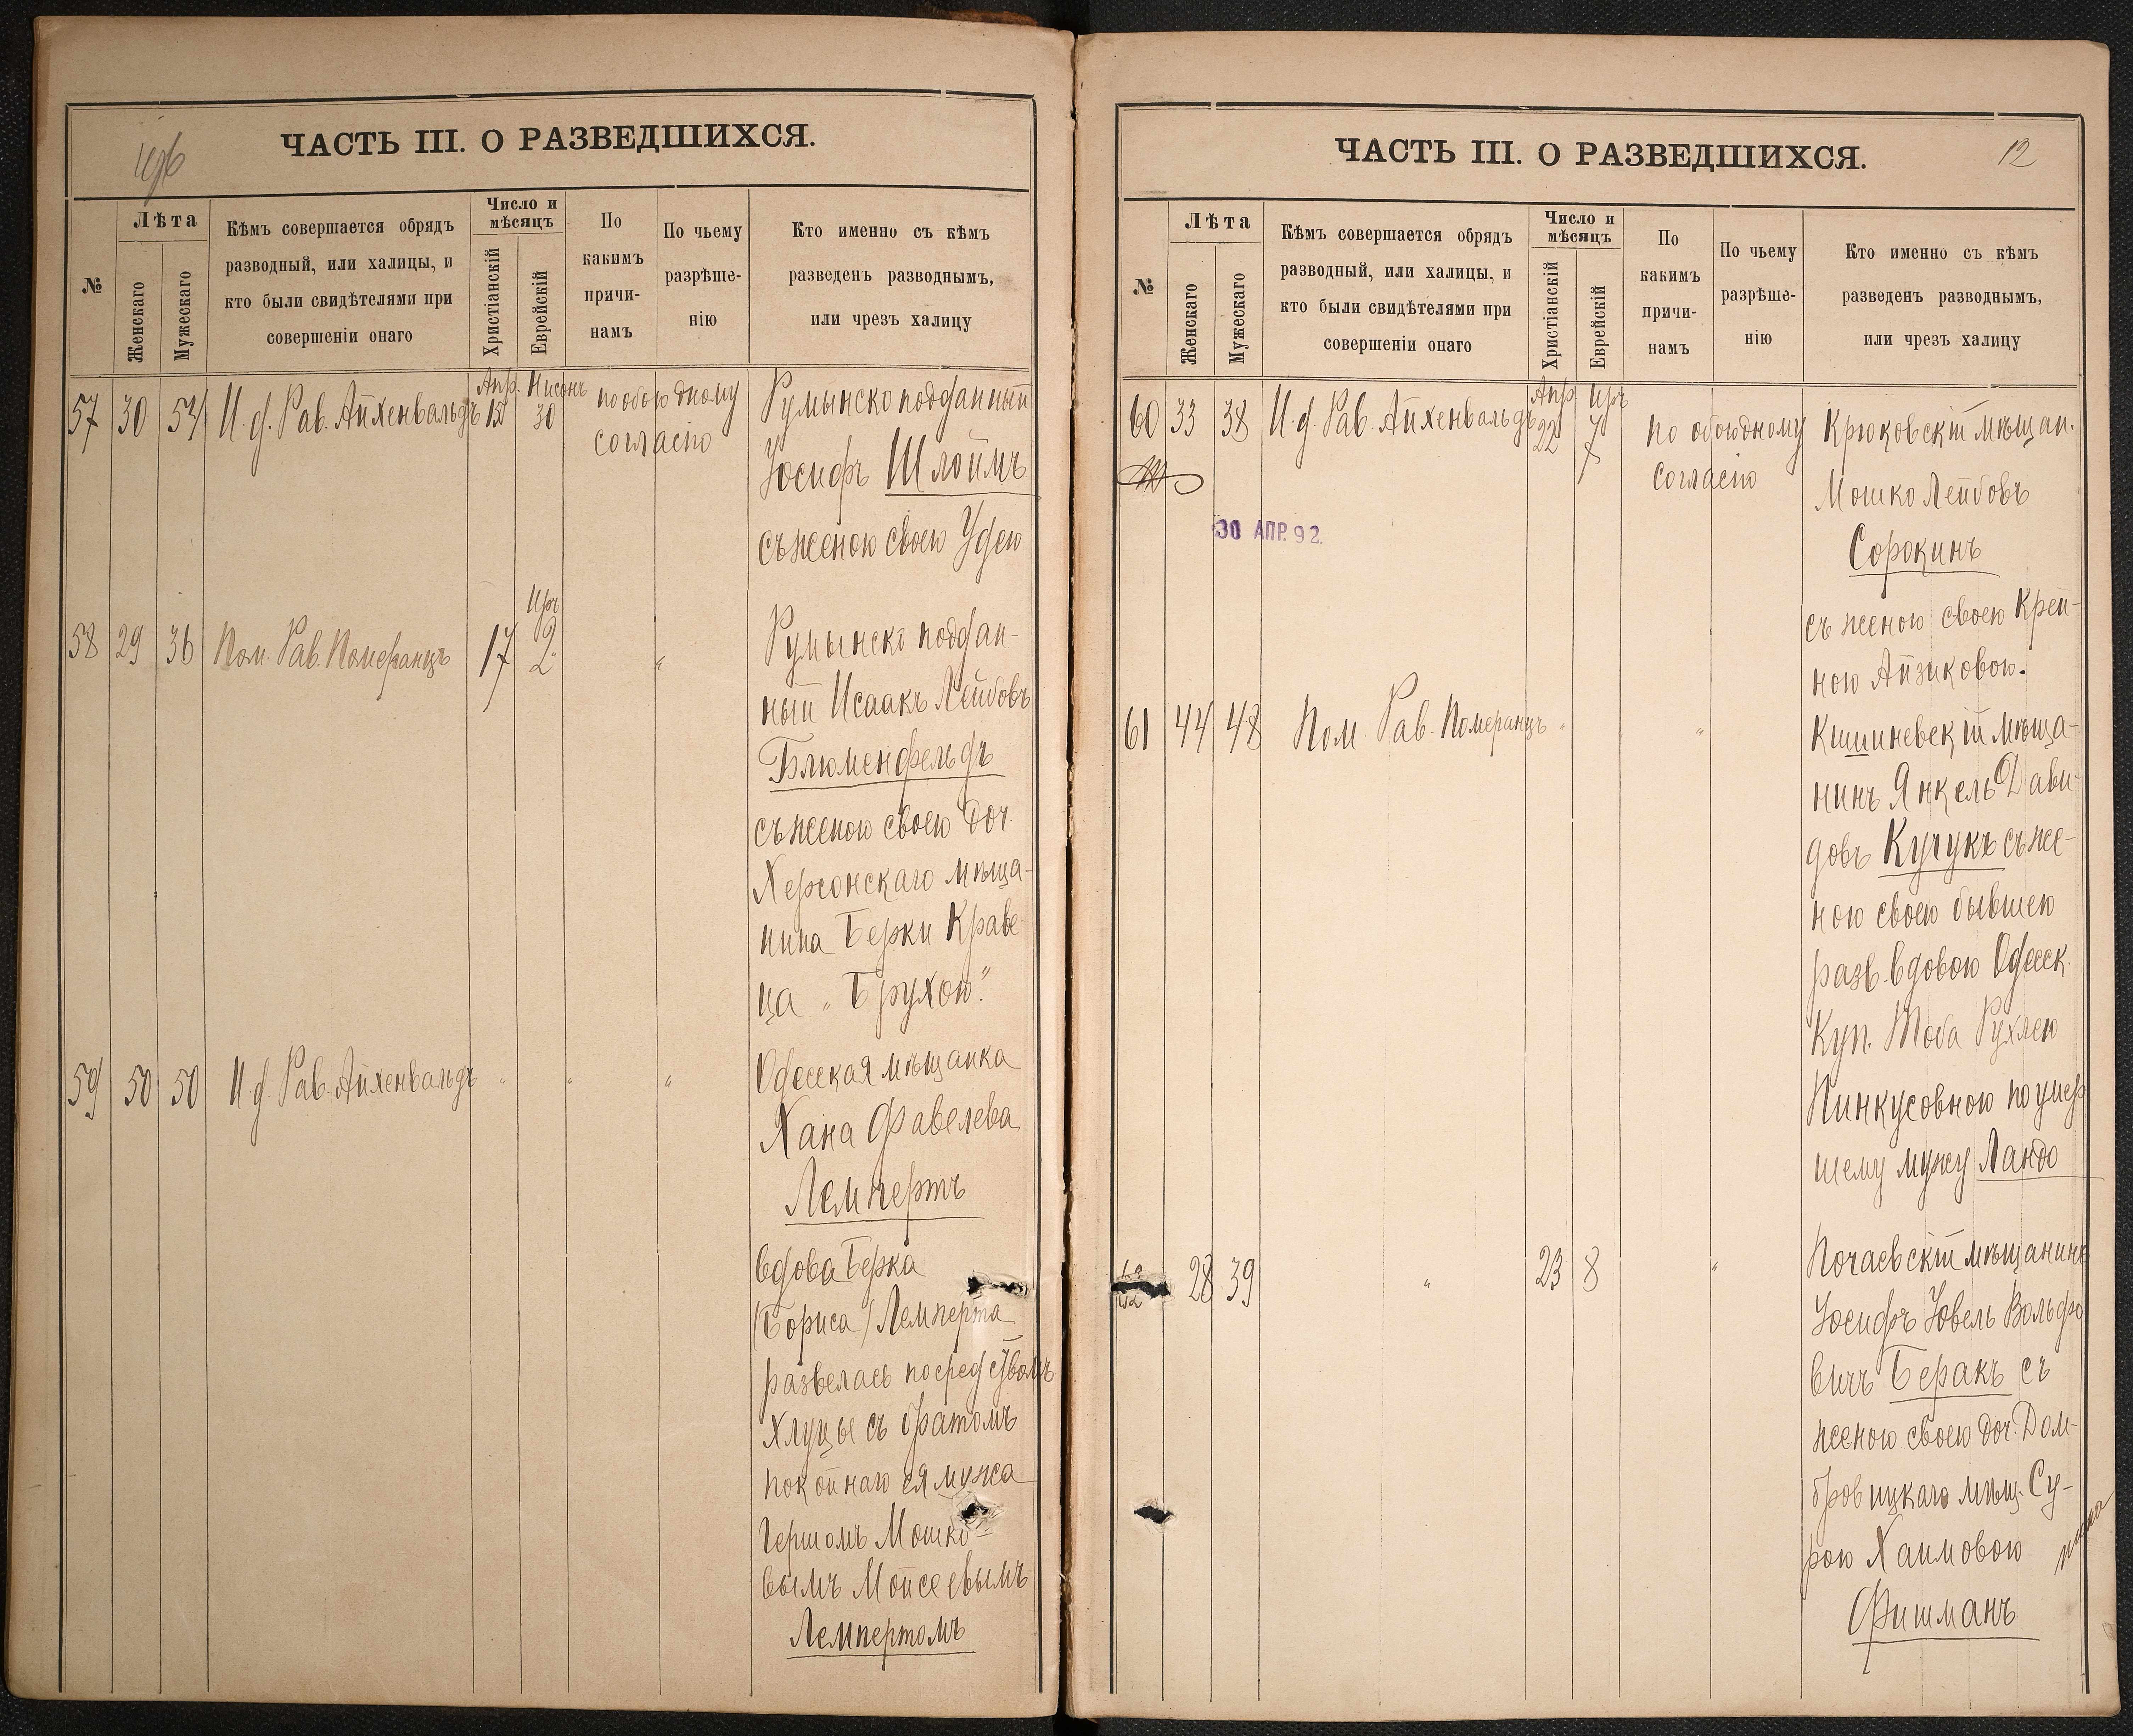 ЧАСТЬ III. О РАЗВЕДШИХСЯ.
№
Лѣта
Женскаго
Мужескаго
Кѣмъ совершается обрядъ
разводный, или халицы, и
кто были свидѣтелями при
совершеніи онаго
Число и
мѣсяцъ
Христіанскій
Еврейскій
По
какимъ
причи-
намъ
По чьему
разрѣше-
нію
Кто именно съ кѣмъ
разведенъ разводнымъ,
или чрезъ халицу
57 30 54 И. д. Рав. Айхенвальдъ Апр. 15 Нисонъ 30 по обоюдному
согласію
Румынско подданный
Іосифъ Шлоймъ
съ женою своею Удею
58 29 36 Пом. Рав. Померанцъ 17 Иръ 2 "
Румынско поддан-
ный Исаакъ Лейбовъ
Блюменфельдъ
съ женою своею доч.
Херсонскаго мѣща-
нина Берки Краве-
ца „Брухою“.
59 50 50 И. д. Рав. Айхенвальдъ " " "
Одесская мѣщанка
Хана Фавелева
Лемпертъ
вдова Берка
/Бориса/ Лемперта
развелась посредствомъ
хлуцы съ братомъ
покойнаго ея мужа
Гершомъ Мошко-
вымъ Мойсеевымъ
Лемпертомъ
ЧАСТЬ III. О РАЗВЕДШИХСЯ.
12
№
Лѣта
Женскаго
Мужескаго
Кѣмъ совершается обрядъ
разводный, или халицы, и
кто были свидѣтелями при
совершеніи онаго
Число и
мѣсяцъ
Христіанскій
Еврейскій
По
какимъ
причи-
намъ
По чьему
разрѣше-
нію
Кто именно съ кѣмъ
разведенъ разводнымъ,
или чрезъ халицу
60 33 38 И. д. Рав. Айхенвальдъ Апр 22 Иръ 7 по обоюдному
согласію
30 АПР. 92.
Крюковскій мѣщан.
Мошко Лейбовъ
Сорокинъ
съ женою своею Крей-
ною Айзиковою.
61 44 48 Пом. Рав. Померанцъ " "
Кишиневскій мѣща-
нинъ Янкель Дави-
довъ Кучукъ съ же-
ною своею бывшею
разв. вдовою Одесск.
Куп. Тоба Рухлею
Пинкусовною по умер
шему мужу Ландо
62 28 39 " 23 8 "
Почаевскій мѣщанинъ
Іосифъ Ювель Вольфо
вичъ Беракъ съ
женою своею доч. Дом-
бровицкаго мѣщ. Су-
рою Хаимовою
Фишманъ